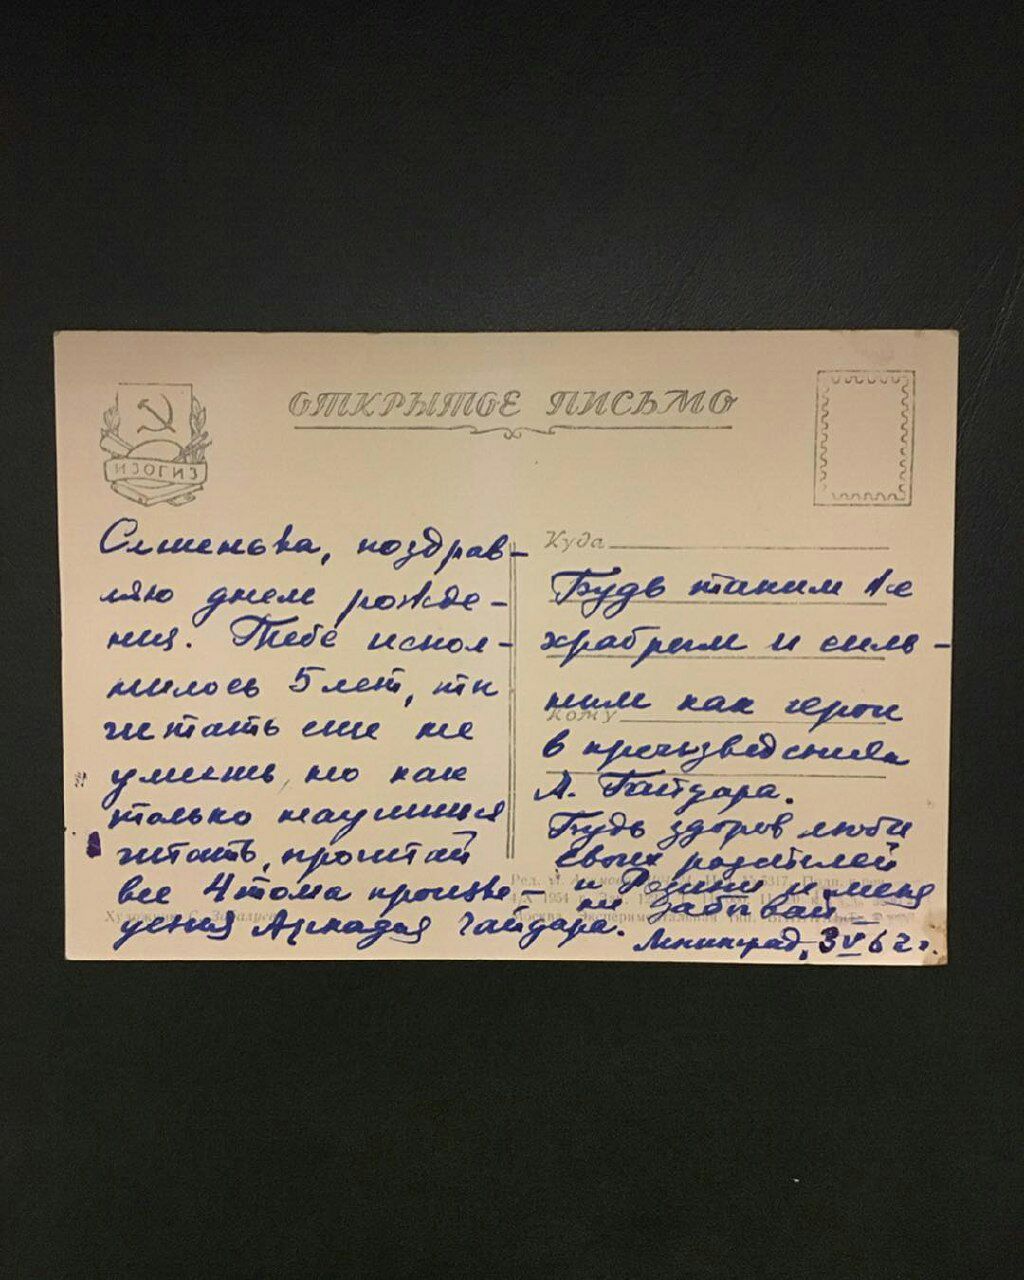 ОТКРЫТОЕ ПИСЬМО
ИЗОГИЗ
Сешенька, поздрав-
ляю днем рожде-
ния. Тебе испол-
нилось 5 лет, ты
читать еще не
умеешь, но как
только научишься
читать, прочитай
все 4 тома произве-
дения Аркадия Гайдара.
Куда
Будь таким же
храбрым и силь-
ным как герои
Кому
в произведениях
А. Гайдара.
Будь здоров люби
своих родителей
и и меня
не забывай
Ленинград, 3 V 62 г.
Художник С.